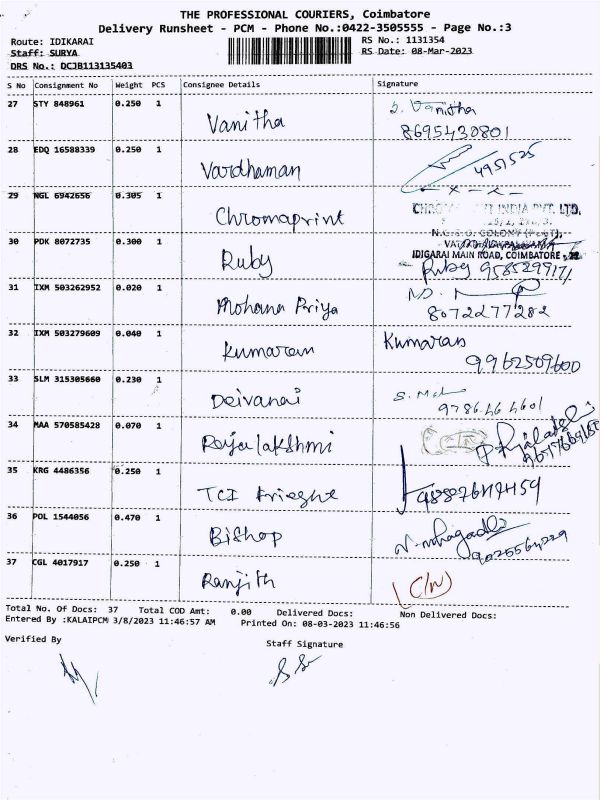 THE PROFESSIONAL COURIERS, Coimbatore
Delivery Runsheet - PCM - Phone No.:0422-3505555 - Page No.:3
Route: IDIKARAI RS No.: 1131354
Staff: SURYA RS Date: 08-Mar-2023
DRS No.: DCJB113135403
S No Consignment No Weight PCS Consignee Details Signature
27 STY 848961 0.250 1 Vanitha S. Vanitha
8695430801
28 EDQ 16588339 0.250 1 Vardhaman 4951525
29 NGL 6942656 0.305 1 Chromaprint INDIA PVT. LTD.
N.G.G.O. COLONY (Post),
IDIGARAI MAIN ROAD, COIMBATORE - 22
30 PDK 8072735 0.300 1 Ruby Ruby
31 IXM 503262952 0.020 1 Mohana Priya
8072277282
32 IXM 503279609 0.040 1 Kumaran Kumaran
9962509600
33 SLM 315305660 0.230 1 Deivanai
34 MAA 570585428 0.070 1 Rajalakshmi
35 KRG 4486356 0.250 1 TCI
36 POL 1544056 0.470 1 Bishop
37 CGL 4017917 0.250 1 Ranjith (C/N)
Total No. Of Docs: 37 Total COD Amt: 0.00 Delivered Docs: Non Delivered Docs:
Entered By :KALAIPCM 3/8/2023 11:46:57 AM Printed On: 08-03-2023 11:46:56
Verified By Staff Signature